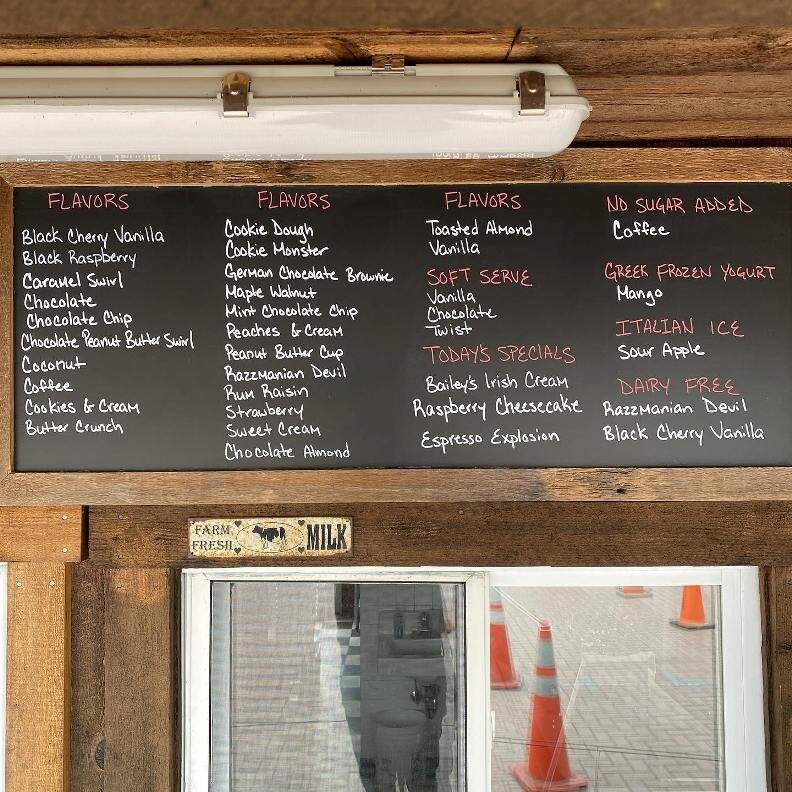 FLAVORS
Black Cherry Vanilla
Black Raspberry
Caramel Swirl
Chocolate
Chocolate Chip
Chocolate Peanut Butter Swirl
Coconut
Coffee
Cookies & Cream
Butter Crunch
FLAVORS
Cookie Dough
Cookie Monster
German Chocolate Brownie
Maple Walnut
Mint Chocolate Chip
Peaches & Cream
Peanut Butter Cup
Razzmanian Devil
Rum Raisin
Strawberry
Sweet Cream
Chocolate Almond
FLAVORS
Toasted Almond
Vanilla
SOFT SERVE
Vanilla
Chocolate
Twist
TODAY'S SPECIALS
Bailey's Irish Cream
Raspberry Cheesecake
Espresso Explosion
NO SUGAR ADDED
Coffee
GREEK FROZEN YOGURT
Mango
ITALIAN ICE
Sour Apple
DAIRY FREE
Razzmanian Devil
Black Cherry Vanilla
FARM FRESH
MILK